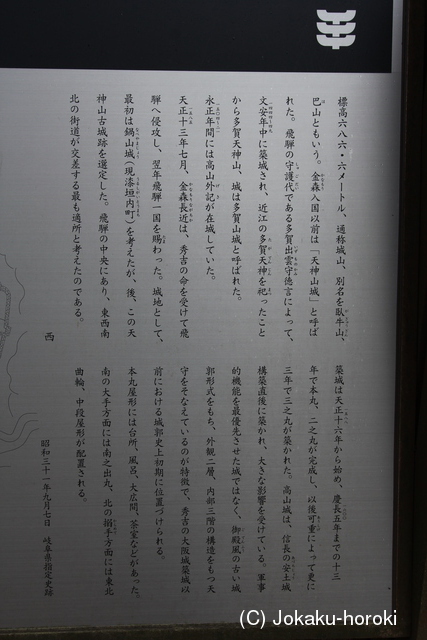 標高六八六・六メートル、通称城山、別名を臥牛山、
巴山ともいう。金森入国以前は「天神山城」と呼ば
れた。飛騨の守護代である多賀出雲守徳言によって、
文安年中に築城され、近江の多賀天神を祀ったこと
から多賀天神山、城は多賀山城と呼ばれた。
永正年間には高山外記が在城していた。
天正十三年七月、金森長近は、秀吉の命を受けて飛
騨へ侵攻し、翌年飛騨一国を賜わった。城地として、
最初は鍋山城（現漆垣内町）を考えたが、後、この天
神山古城跡を選定した。飛騨の中央にあり、東西南
北の街道が交差する最も適所と考えたのである。
築城は天正十六年から始め、慶長五年までの十三
年で本丸、二之丸が完成し、以後可重によって更に
三年で三之丸が築かれた。高山城は、信長の安土城
構築直後に築かれ、大きな影響を受けている。軍事
的機能を最優先させた城ではなく、御殿風の古い城
郭形式をもち、外観二層、内部三階の構造をもつ天
守をそなえているのが特徴で、秀吉の大阪城築城以
前における城郭史上初期に位置づけられる。
本丸屋形には台所、風呂、大広間、茶室などがあった。
南の大手方面には南之出丸、北の搦手方面には東北
曲輪、中段屋形が配置される。
昭和三十一年九月七日 岐阜県指定史跡
西
(C) Jokaku-horoki